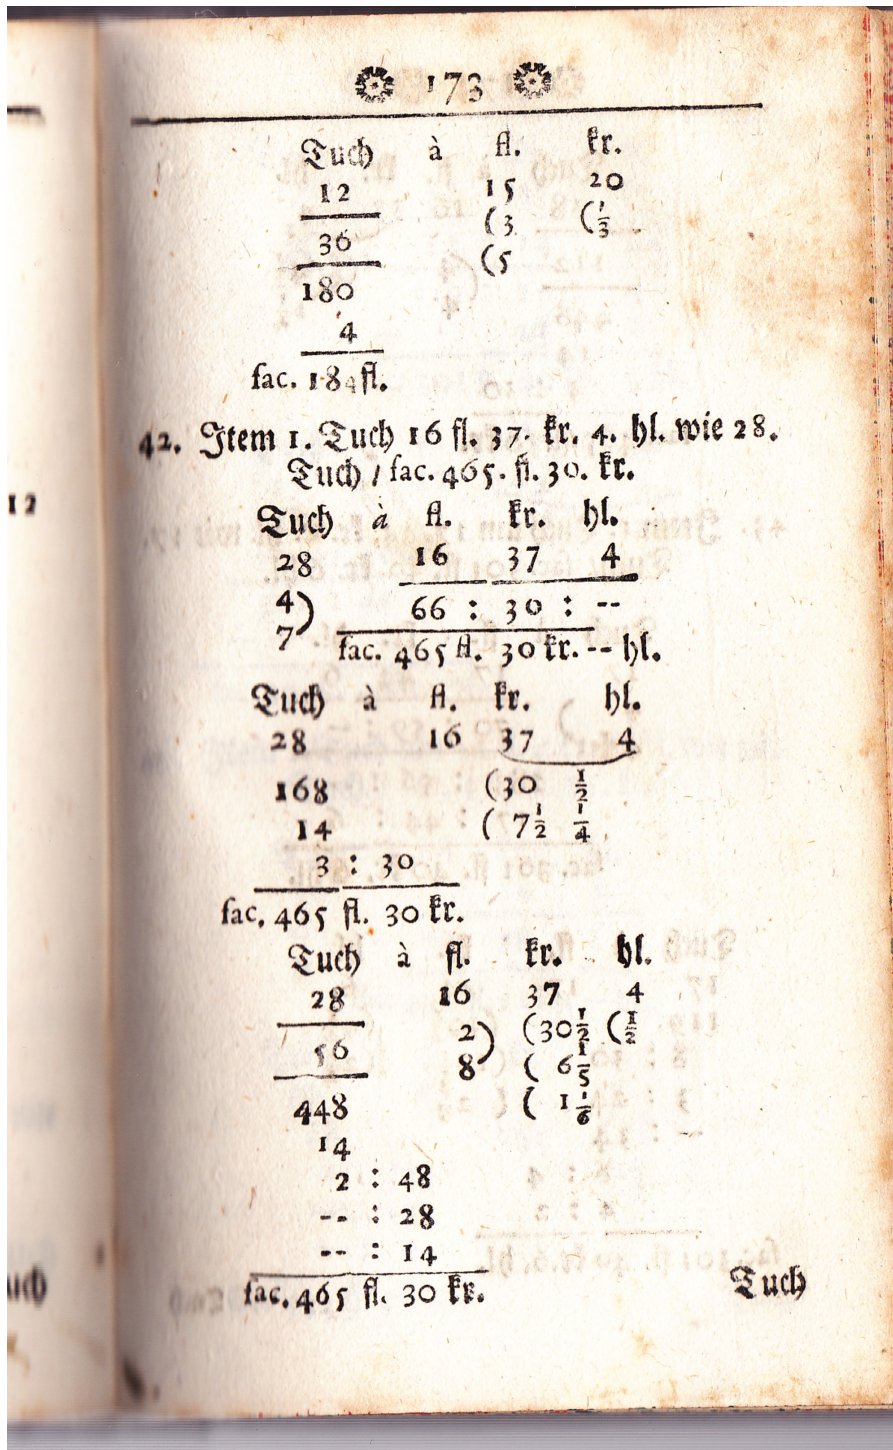 173
Tuch à fl. kr.
12 15 20
(3 (1/3
36 (5
180
4
fac. 184 fl.
42. Item 1. Tuch 16 fl. 37. kr. 4. hl. wie 28.
Tuch / fac. 465. fl. 30. kr.
Tuch à fl. kr. hl.
28 16 37 4
4) 66 : 30 : --
7 fac. 465 fl. 30 kr. -- hl.
Tuch à fl. kr. hl.
28 16 37 4
168 (30 1/2
14 ( 7 1/2 1/4
3 : 30
fac. 465 fl. 30 kr.
Tuch à fl. kr. hl.
28 16 37 4
2) (30 1/2 (1/2
56 8 ( 6 1/5
448 ( 1 1/6
14
2 : 48
-- : 28
-- : 14
fac. 465 fl. 30 kr.
Tuch
12
uch